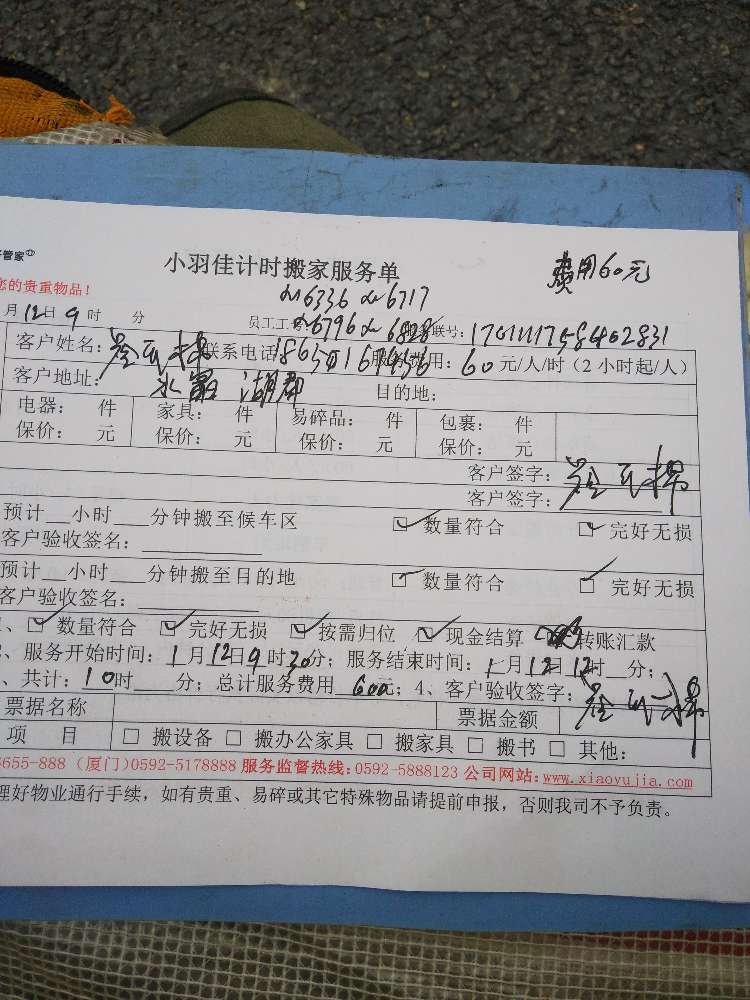 管家
小羽佳计时搬家服务单
费用60元
您的贵重物品！
6336 6717
月12日9时 分
员工工号
6796 6828
联号：
客户姓名： 联系电话 服务费用：60元/人/时（2小时起/人）
客户地址： 水晶湖郡 目的地：
电器： 件 家具： 件 易碎品： 件 包裹： 件
保价： 元 保价： 元 保价： 元 保价： 元
客户签字：
客户签字：
预计__小时___分钟搬至候车区 ☑数量符合 ☑完好无损
客户验收签名：
预计__小时___分钟搬至目的地 ☑数量符合 ☑完好无损
客户验收签名：
、☑数量符合 ☑完好无损 ☑按需归位 ☑现金结算 转账汇款
、服务开始时间：1月12日9时30分；服务结束时间：1月12日12时__分；
、共计：10时___分；总计服务费用600元；4、客户验收签字：
票据名称 票据金额
项 目 □搬设备 □搬办公家具 □搬家具 □搬书 □其他：
655-888（厦门）0592-5178888 服务监督热线：0592-5888123 公司网站：www.xiaoyujia.com
理好物业通行手续，如有贵重、易碎或其它特殊物品请提前申报，否则我司不予负责。